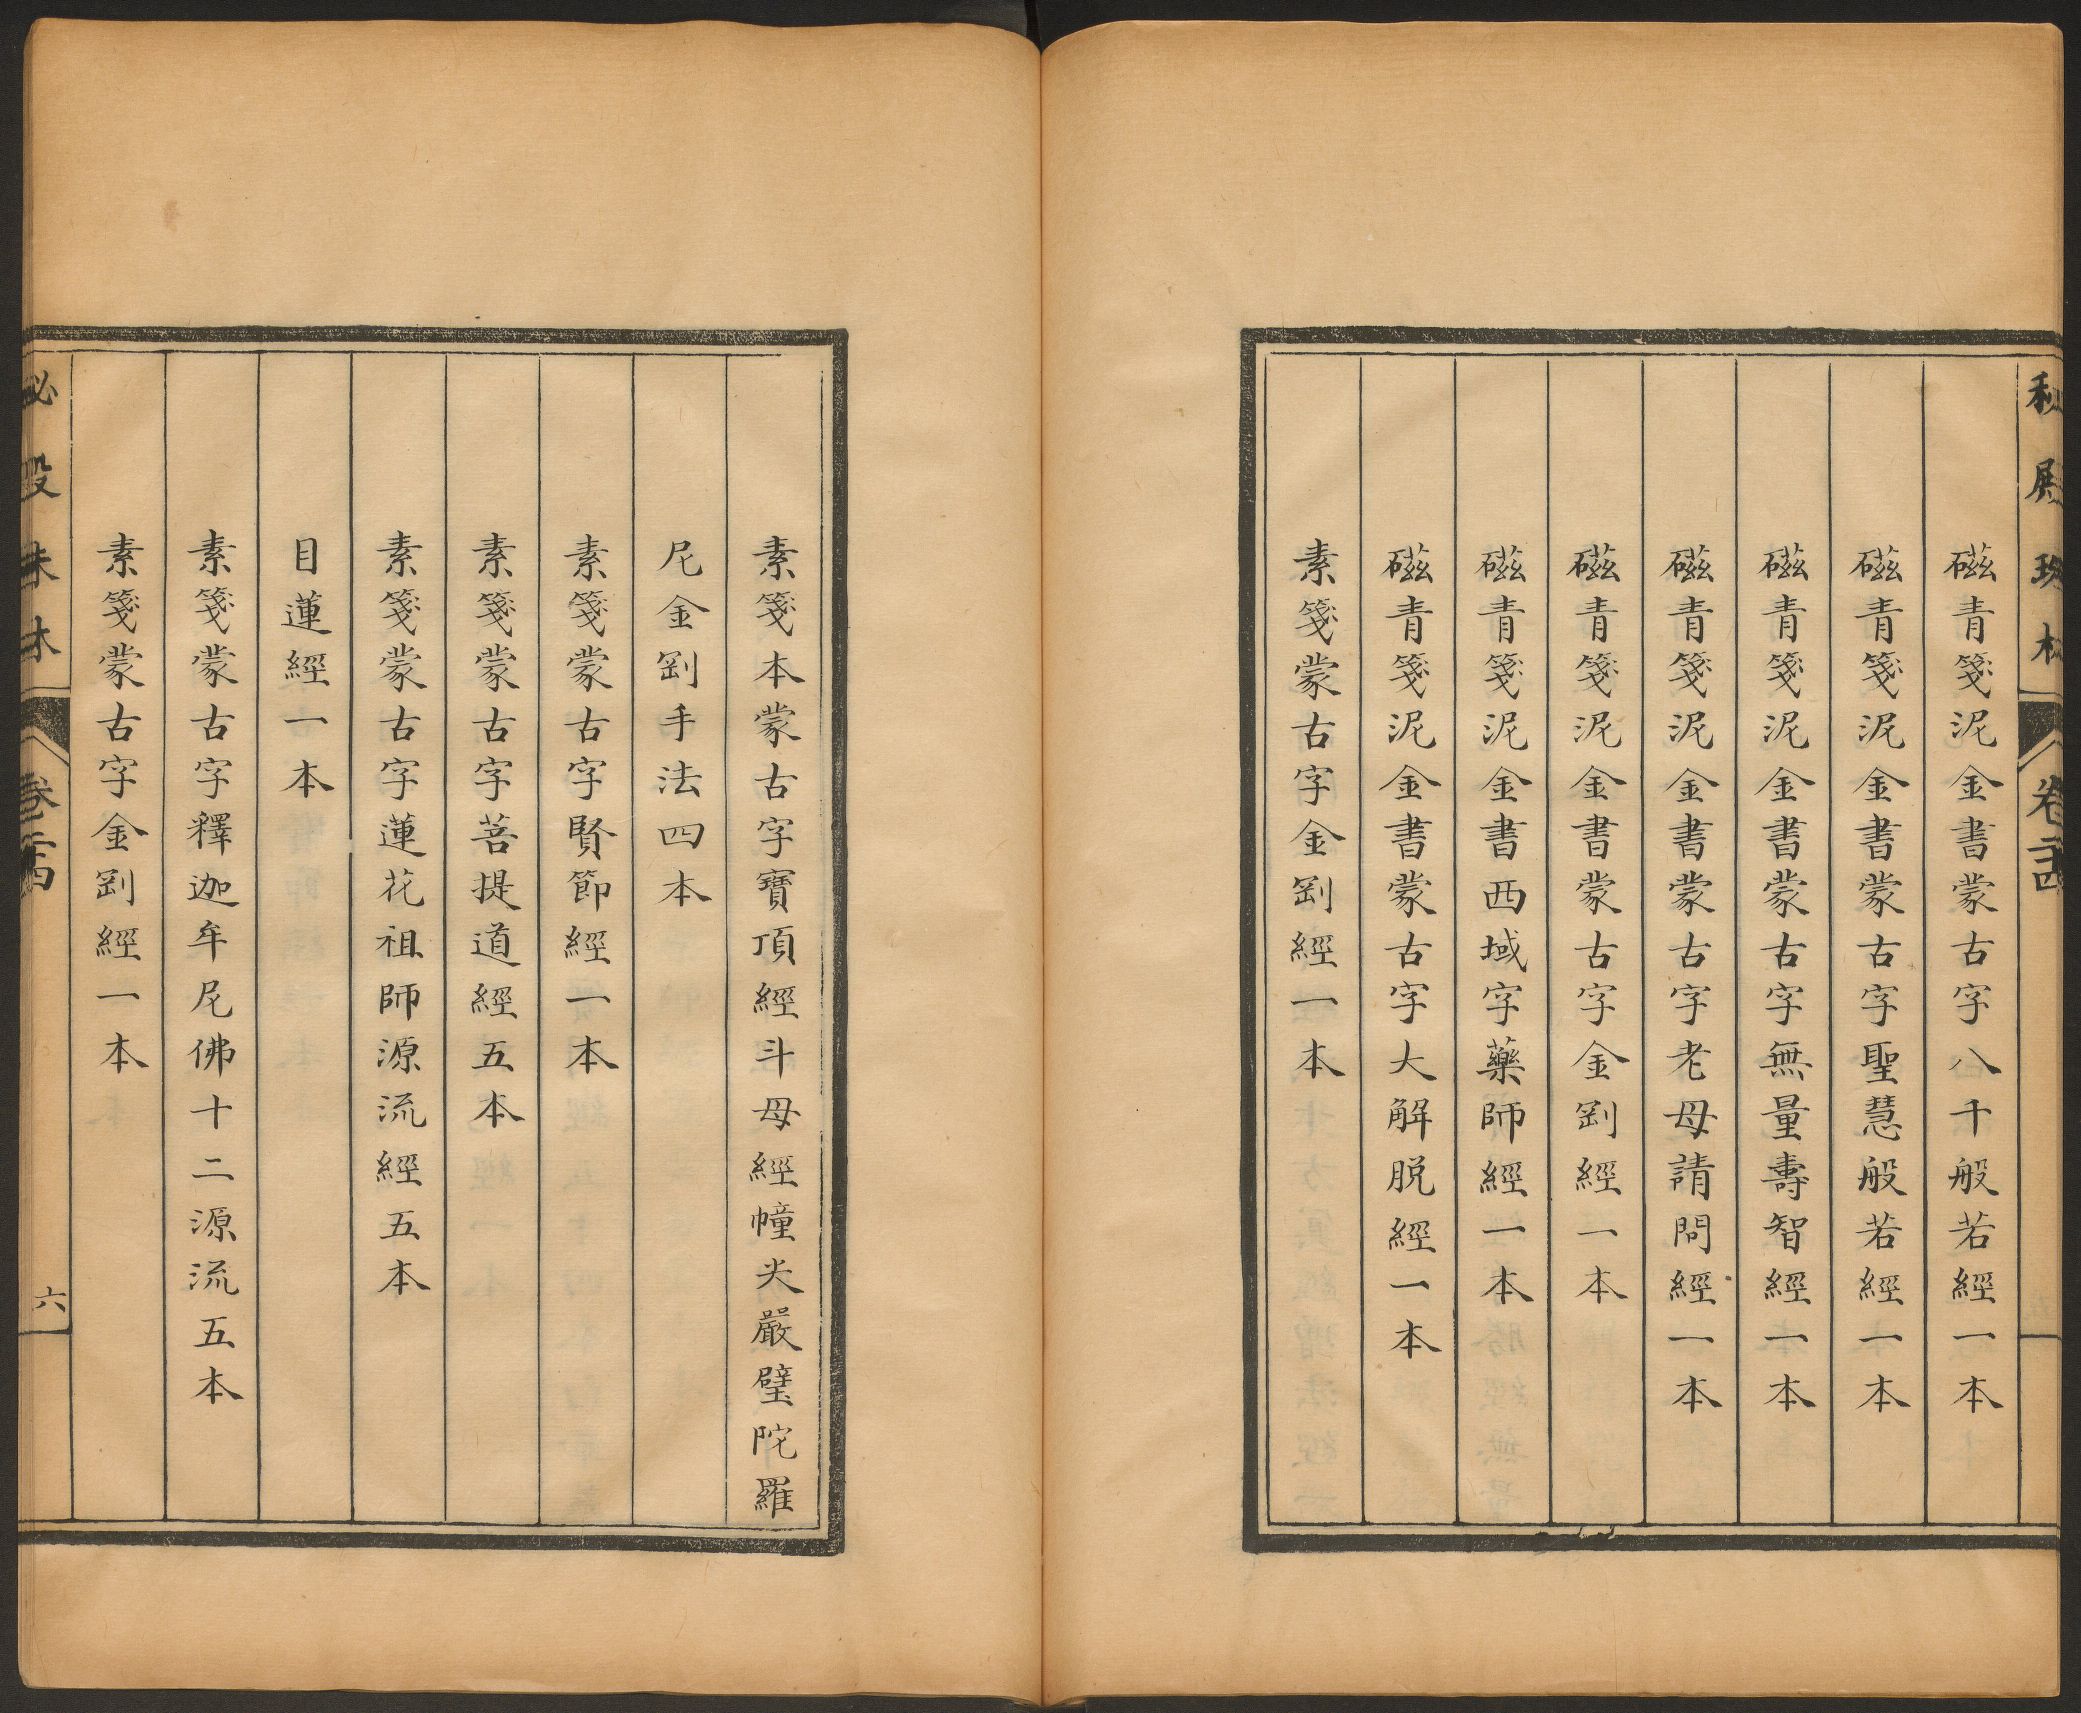 磁青箋泥金書蒙古字八千般若經一本
磁青箋泥金書蒙古字聖慧般若經一本
磁青箋泥金書蒙古字無量壽智經一本
磁青箋泥金書蒙古字老母請問經一本
磁青箋泥金書蒙古字金剛經一本
磁青箋泥金書西域字藥師經一本
磁青箋泥金書蒙古字大解脫經一本
素箋蒙古字金剛經一本
素箋本蒙古字寶頂經斗母經幢尖嚴璧陀羅
尼金剛手法四本
素箋蒙古字賢節經一本
素箋蒙古字菩提道經五本
素箋蒙古字蓮花祖師源流經五本
目蓮經一本
素箋蒙古字釋迦牟尼佛十二源流五本
素箋蒙古字金剛經一本
秘殿珠林 卷二十四 六